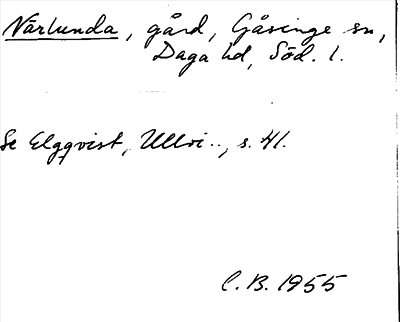 Närlunda, gård, Gåsinge sn,
Daga hd, Söd. l.
Se Elgqvist, Ullvi.., s. 41.
C.B. 1955